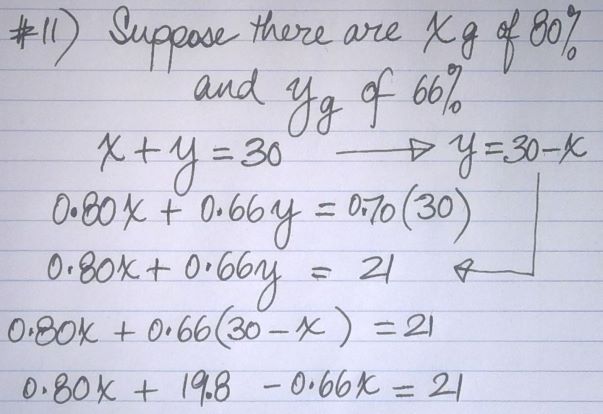 #11) Suppose there are x g of 80%
and y g of 66%
x + y = 30 → y = 30 - x
0.80x + 0.66y = 0.70(30)
0.80x + 0.66y = 21 ←
0.80x + 0.66(30 - x) = 21
0.80x + 19.8 - 0.66x = 21